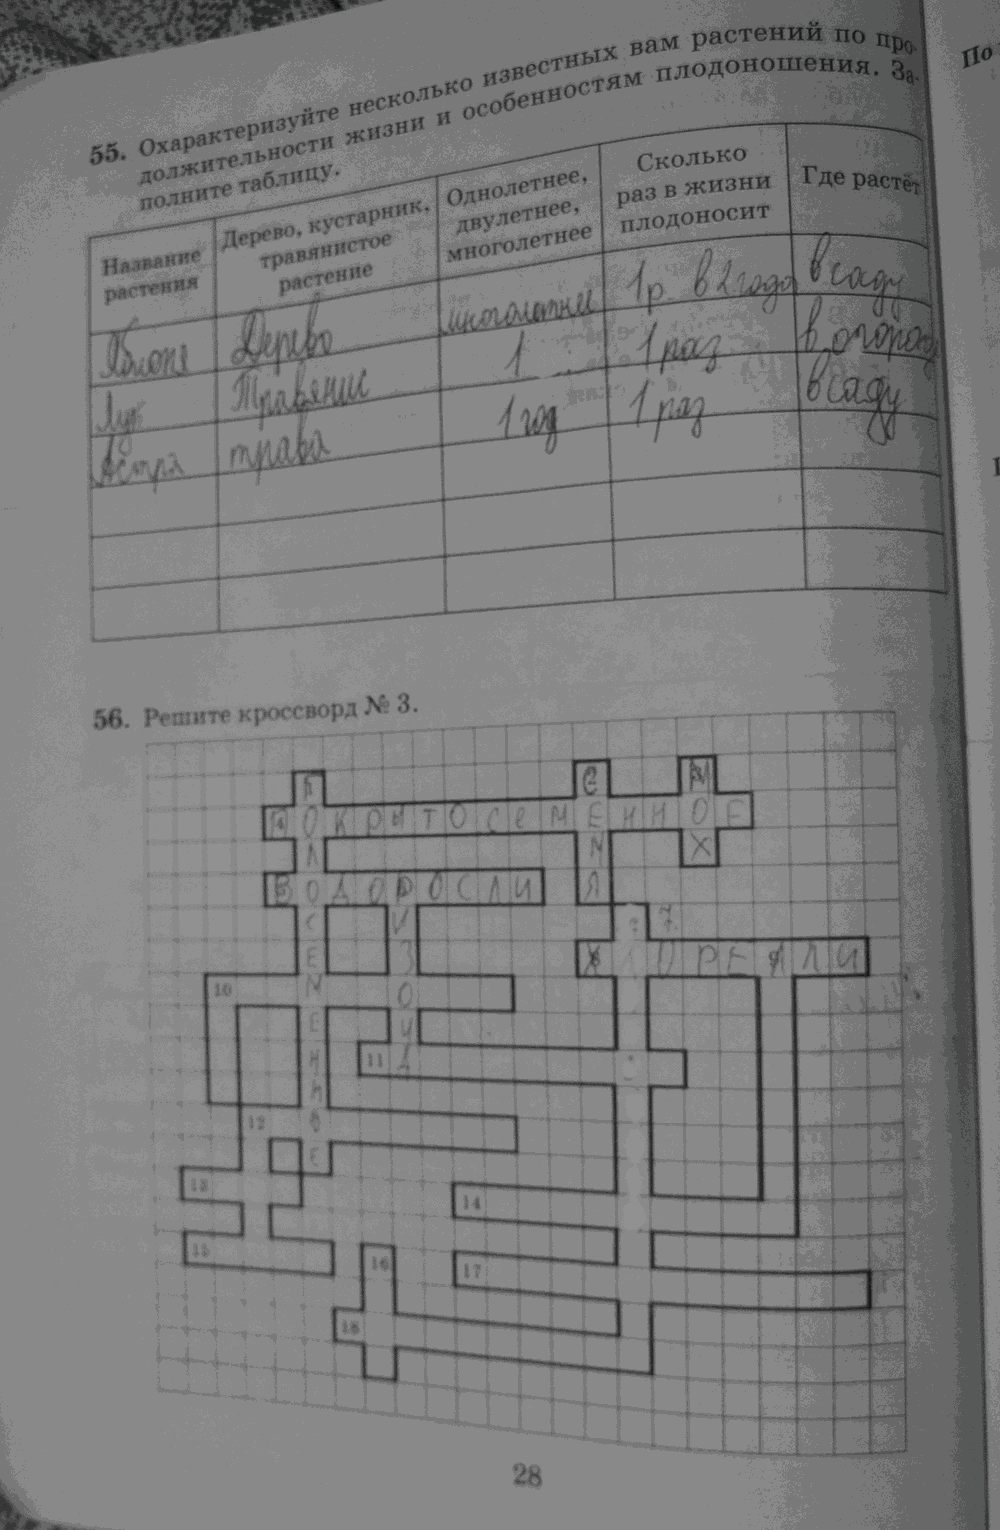 По
55. Охарактеризуйте несколько известных вам растений по про-
должительности жизни и особенностям плодоношения. За-
полните таблицу.
Название растения
Дерево, кустарник, травянистое растение
Однолетнее, двулетнее, многолетнее
Сколько раз в жизни плодоносит
Где растёт
Яблоня Дерево многолетнее 1 р. в 2 года в саду
Лук Травянис 1 1 раз в огороде
Астра трава 1 год 1 раз в саду
56. Решите кроссворд № 3.
ПОКРЫТОСЕМЕННОЕ
ГОЛОСЕМЕННОЕ
СЕМЯ
МОХ
ВОДОРОСЛИ
РИЗОИД
7
ХЛОРЕЛЛИ
10
11
12
13
14
15
16
17
18
28